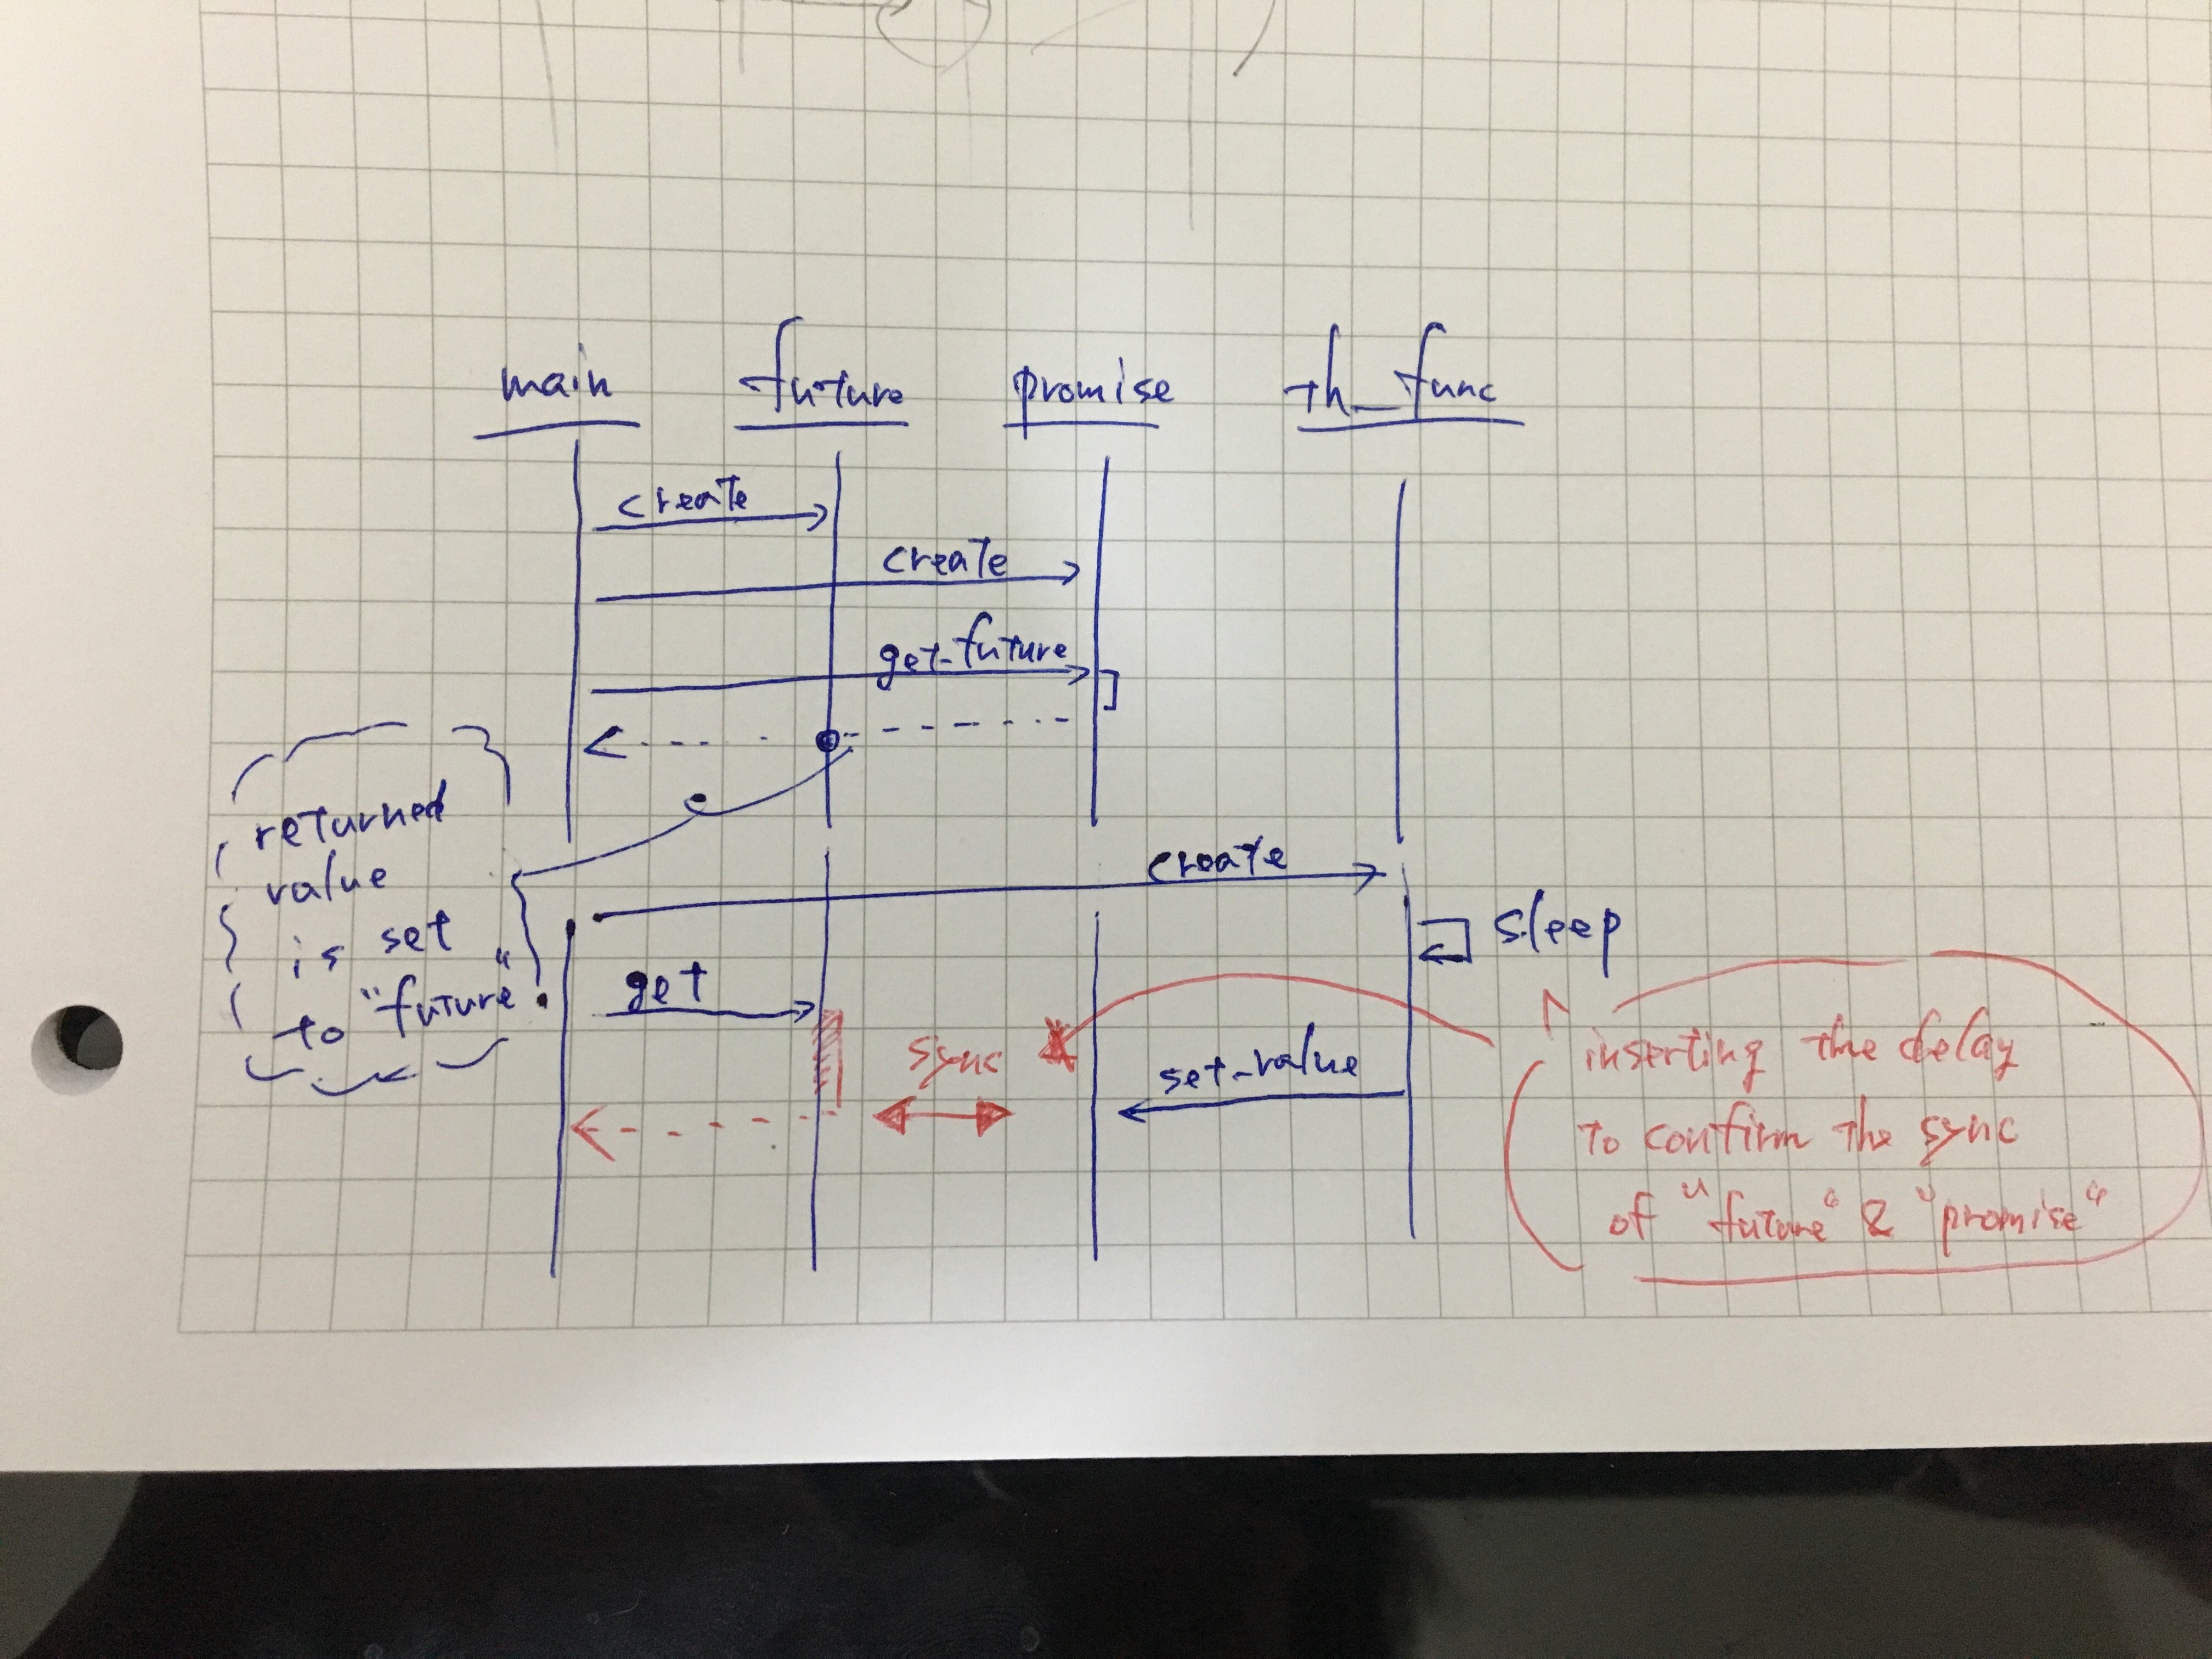 main future promise th_func
create
create
get_future
returned
value
is set
to "future"
create
sleep
get
sync
set_value
inserting the delay
to confirm the sync
of "future" & "promise"